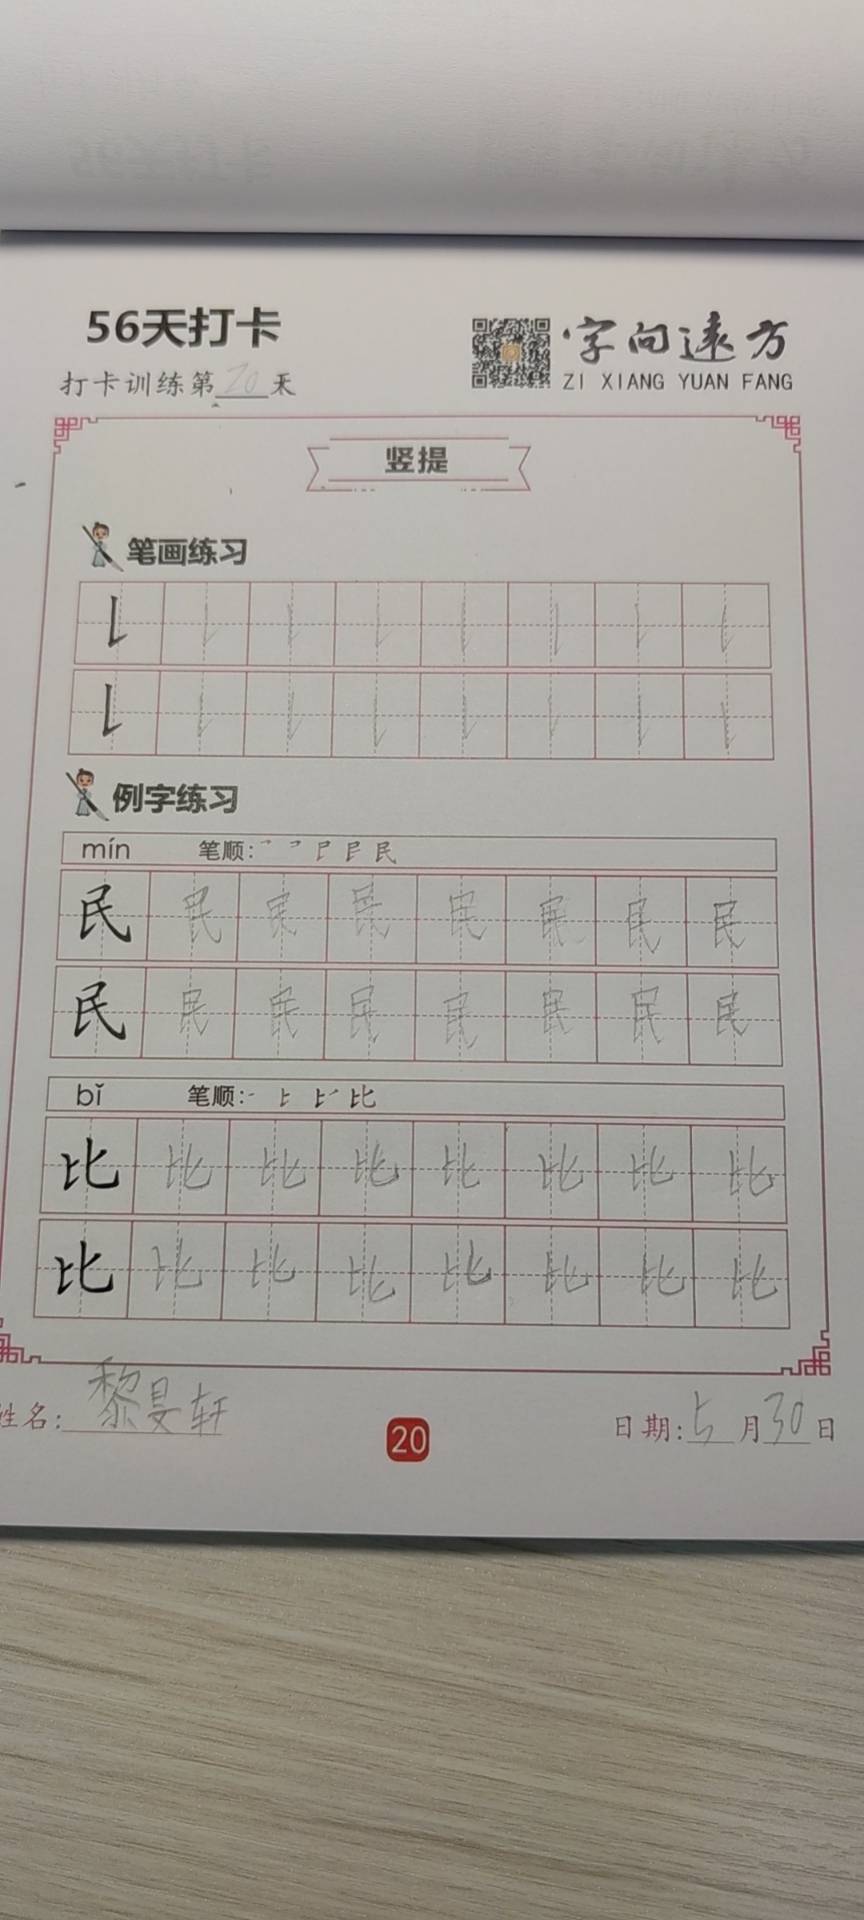 56天打卡
字向远方
打卡训练第20天
ZI XIANG YUAN FANG
竖提
笔画练习
例字练习
mín 笔顺:
民 民 民 民 民 民 民 民
民 民 民 民 民 民 民 民
bǐ 笔顺:
比 比 比 比 比 比 比 比
比 比 比 比 比 比 比 比
姓名:黎旻轩
20
日期:5月30日